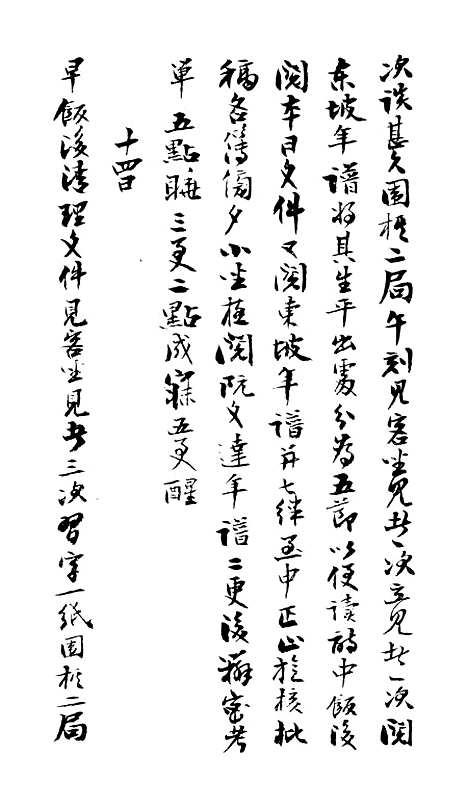 次談甚久圍棋二局午刻見客坐見者一次立見者一次閱
東坡年譜將其生平出處分為五節以便讀詩中飯後
閱本日文件又閱東坡年譜并七律至申正止於核批
稿各簿傍夕小坐夜閱阮文達年譜二更後辦密考
單五點睡三更二點成寐五更醒
十四日
早飯後清理文件見客坐見者三次習字一紙圍棋二局